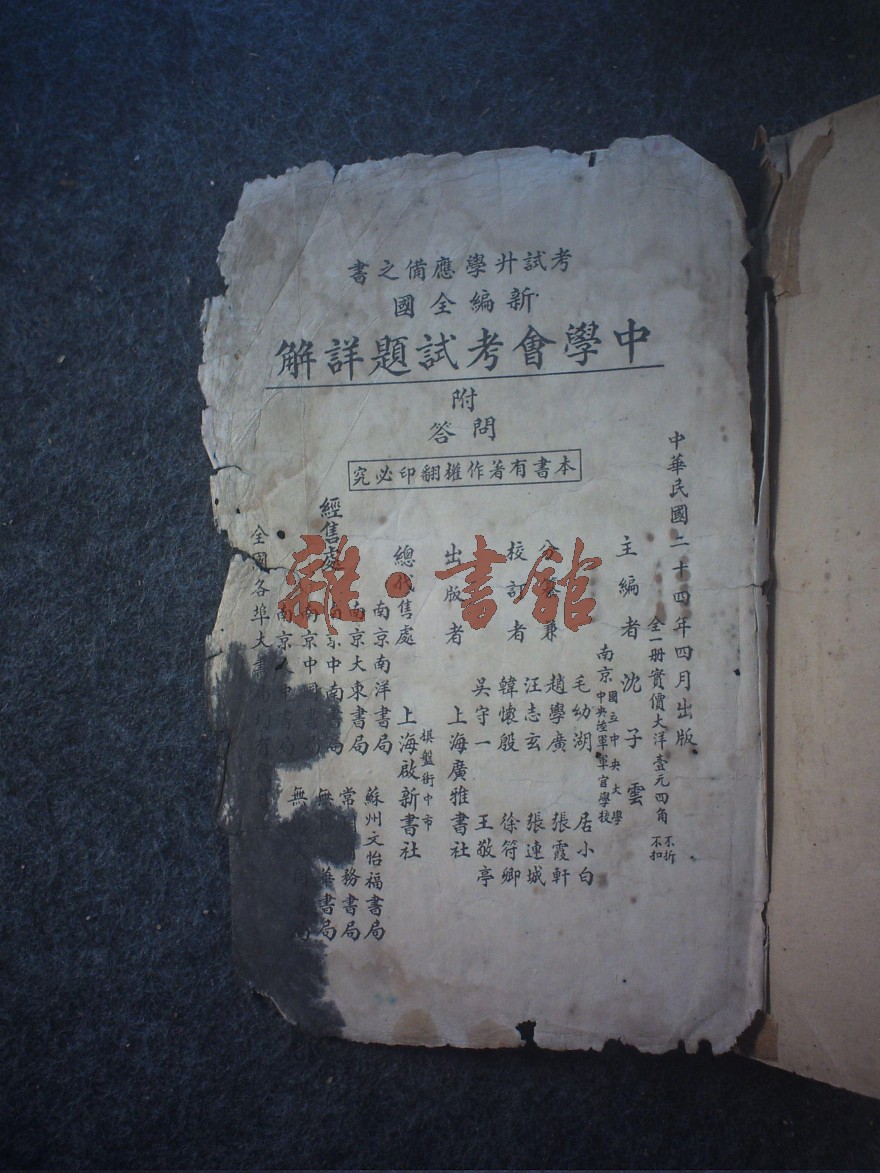 考試升學應備之書
新編全國
中學會考試題詳解
附
問答
本書有著作權翻印必究
中華民國二十四年四月出版
全一冊實價大洋壹元四角 不折不扣
主編者 沈子雲
南京 國立中央大學 中央陸軍軍官學校
毛幼湖 居小白
兼 趙學廣 張霞軒
汪志玄 張連城
校訂者 韓懷殷 徐符卿
吳守一 王敬亭
出版者 上海廣雅書社
棋盤街中市
總代售處 上海啟新書社
南京南洋書局 蘇州文怡福書局
南京大東書局 常務書局
經售處 中南局 無華書局
南京中
南京 無
全國各埠大書
雜·書館